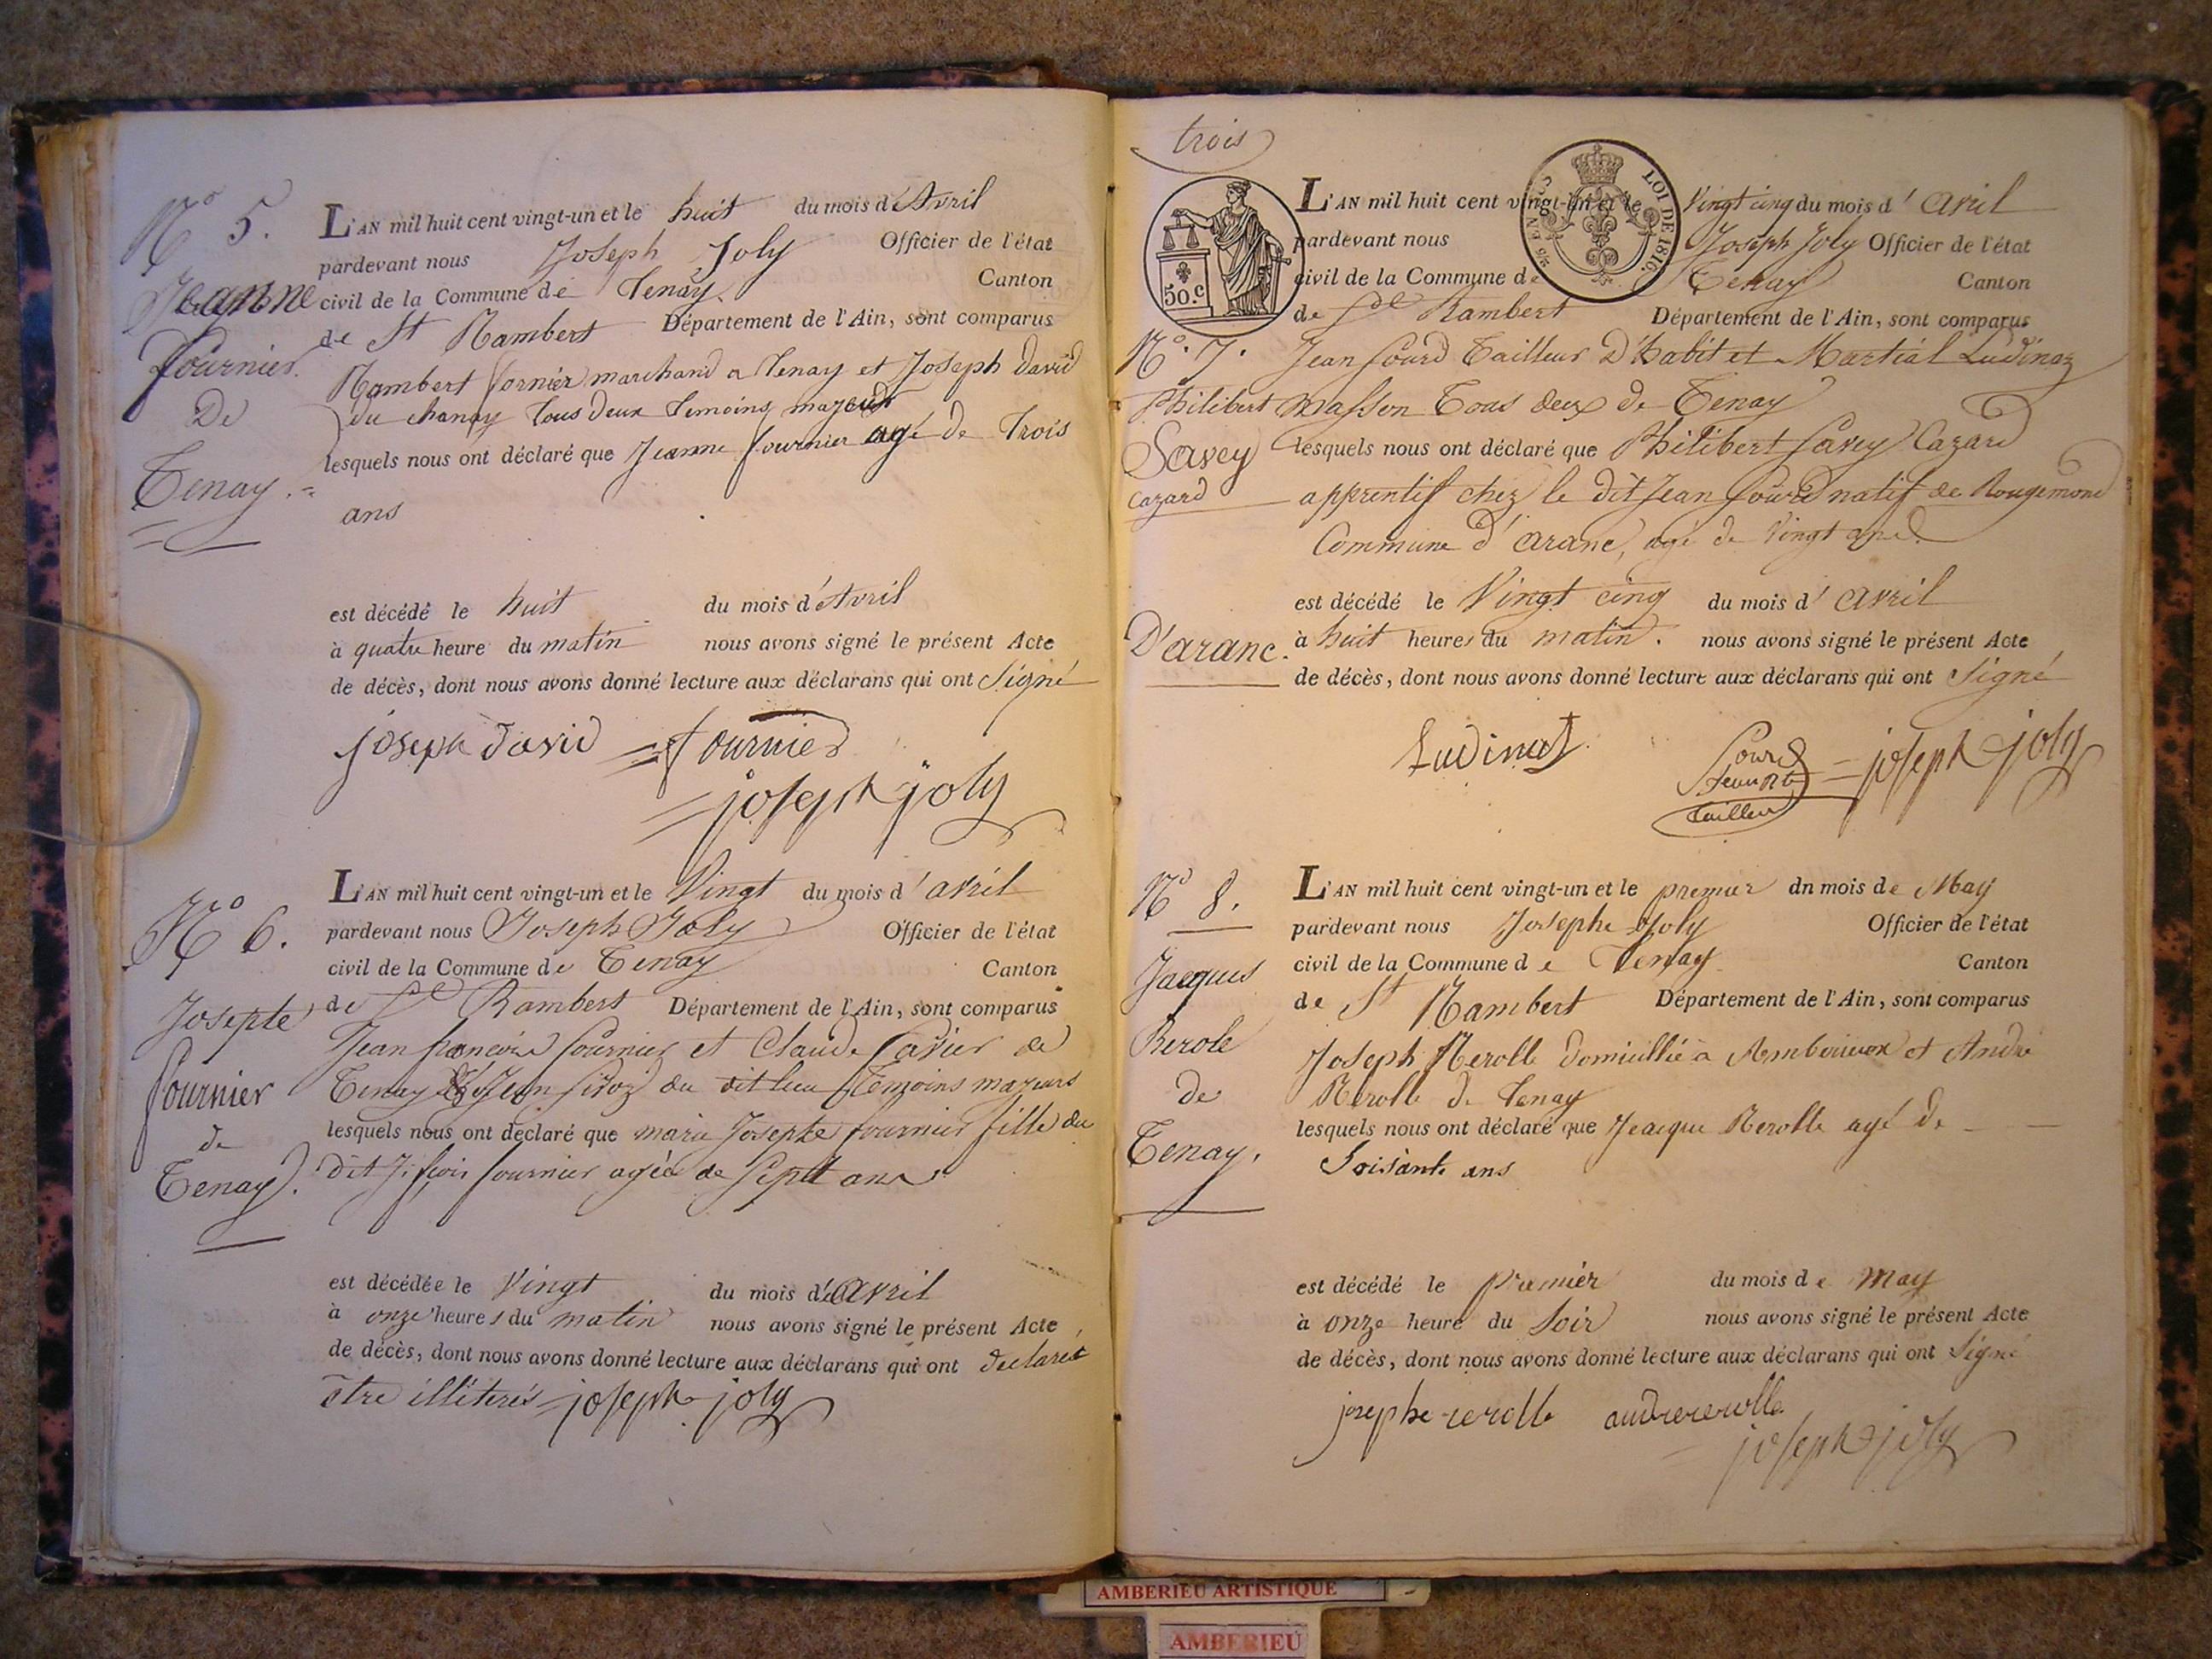 N° 5.
Jeanne
Fournier
De
Tenay.
L'AN mil huit cent vingt-un et le huit du mois d'Avril
pardevant nous Joseph Joly Officier de l'état
civil de la Commune de Tenay Canton
de St Rambert Département de l'Ain, sont comparus
Rambert fornier marchand a Tenay et Joseph David
du chanay tous deux temoins majeur
lesquels nous ont déclaré que Jeanne fournier agé de trois
ans
est décédé le huit du mois d'Avril
à quatre heure du matin nous avons signé le présent Acte
de décès, dont nous avons donné lecture aux déclarans qui ont signé
joseph david fournier
joseph joly
N° 6.
Josepte
fournier
de
Tenay.
L'AN mil huit cent vingt-un et le Vingt du mois d'avril
pardevant nous Joseph Joly Officier de l'état
civil de la Commune de Tenay Canton
de St Rambert Département de l'Ain, sont comparus
Jean francois fournier et Claude de
Tenay Jean du dit lieu temoins majeurs
lesquels nous ont déclaré que marie Josephte fournier fille du
dit J. fcois fournier agée de Sept ans
est décédée le Vingt du mois d'avril
à onze heures du matin nous avons signé le présent Acte
de décès, dont nous avons donné lecture aux déclarans qui ont declaret
être illiterés joseph joly
trois
50. c
LOI DE 1816.
N°. 7.
Philibert
Savey
Cazard
D'aranc.
L'AN mil huit cent vingt-un et le Vingt cinq du mois d'avril
pardevant nous Joseph Joly Officier de l'état
civil de la Commune de Tenay Canton
de St Rambert Département de l'Ain, sont comparus
Jean Sourd Tailleur D'habit et Martial Ludinaz
masson Tous deux de Tenay
lesquels nous ont déclaré que Philibert Savey Cazard
apprentif chez le dit Jean Sourd natif de Rougemond
Commune d'aranc, agé de Vingt ans.
est décédé le Vingt cinq du mois d'avril
à huit heures du matin. nous avons signé le présent Acte
de décès, dont nous avons donné lecture aux déclarans qui ont Signé
Ludinaz Sourd joseph joly
tailleur
N° 8.
Jacques
Rerole
de
Tenay.
L'AN mil huit cent vingt-un et le premier dn mois de May
pardevant nous Josephe Joly Officier de l'état
civil de la Commune de Tenay Canton
de St Rambert Département de l'Ain, sont comparus
Joseph Rerolle domicillié a Amberieux et André
Rerolle de Tenay
lesquels nous ont déclaré que Jeacque Rerolle agé de
Soisante ans
est décédé le premier du mois de may
à onze heure du soir nous avons signé le présent Acte
de décès, dont nous avons donné lecture aux déclarans qui ont signé
josephe rerolle andre rerolle
joseph joly
AMBERIEU ARTISTIQUE
AMBERIEU